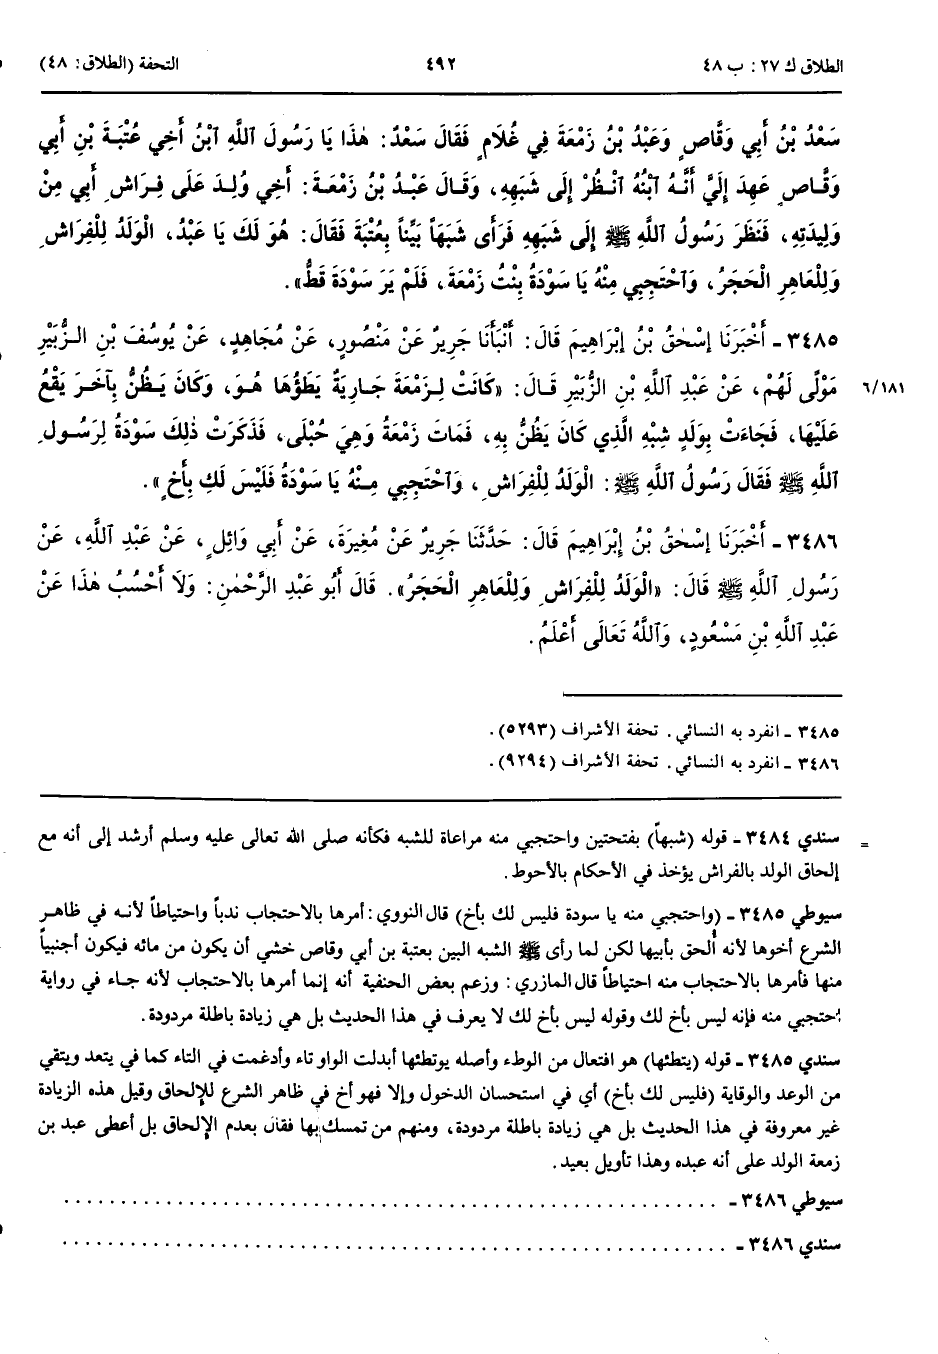 الطلاق ك ٢٧: ب ٤٨
٤٩٢
التحفة (الطلاق: ٤٨)
سَعْدُ بْنُ أَبِي وَقَّاصٍ وَعَبْدُ بْنُ زَمْعَةَ فِي غُلَامٍ فَقَالَ سَعْدٌ: هٰذَا يَا رَسُولَ اللَّهِ ابْنُ أَخِي عُتْبَةَ بْنِ أَبِي
وَقَّاصٍ عَهِدَ إِلَيَّ أَنَّهُ ابْنُهُ انْظُرْ إِلَى شَبَهِهِ، وَقَالَ عَبْدُ بْنُ زَمْعَةَ: أَخِي وُلِدَ عَلَى فِرَاشِ أَبِي مِنْ
وَلِيدَتِهِ، فَنَظَرَ رَسُولُ اللَّهِ ﷺ إِلَى شَبَهِهِ فَرَأَى شَبَهاً بَيِّناً بِعُتْبَةَ فَقَالَ: هُوَ لَكَ يَا عَبْدُ، الْوَلَدُ لِلْفِرَاشِ
وَلِلْعَاهِرِ الْحَجَرُ، وَاحْتَجِبِي مِنْهُ يَا سَوْدَةُ بِنْتُ زَمْعَةَ، فَلَمْ يَرَ سَوْدَةَ قَطُّ».
٣٤٨٥ - أَخْبَرَنَا إِسْحٰقُ بْنُ إِبْرَاهِيمَ قَالَ: أَنْبَأَنَا جَرِيرٌ عَنْ مَنْصُورٍ، عَنْ مُجَاهِدٍ، عَنْ يُوسُفَ بْنِ الزُّبَيْرِ
مَوْلًى لَهُمْ، عَنْ عَبْدِ اللَّهِ بْنِ الزُّبَيْرِ قَالَ: «كَانَتْ لِزَمْعَةَ جَارِيَةٌ يَطَؤُهَا هُوَ، وَكَانَ يَظُنُّ بِآخَرَ يَقَعُ
٦/١٨١
عَلَيْهَا، فَجَاءَتْ بِوَلَدٍ شِبْهِ الَّذِي كَانَ يَظُنُّ بِهِ، فَمَاتَ زَمْعَةُ وَهِيَ حُبْلَى، فَذَكَرَتْ ذٰلِكَ سَوْدَةُ لِرَسُولِ
اللَّهِ ﷺ فَقَالَ رَسُولُ اللَّهِ ﷺ: الْوَلَدُ لِلْفِرَاشِ، وَاحْتَجِبِي مِنْهُ يَا سَوْدَةُ فَلَيْسَ لَكِ بِأَخٍ».
٣٤٨٦ - أَخْبَرَنَا إِسْحٰقُ بْنُ إِبْرَاهِيمَ قَالَ: حَدَّثَنَا جَرِيرٌ عَنْ مُغِيرَةَ، عَنْ أَبِي وَائِلٍ، عَنْ عَبْدِ اللَّهِ، عَنْ
رَسُولِ اللَّهِ ﷺ قَالَ: «الْوَلَدُ لِلْفِرَاشِ وَلِلْعَاهِرِ الْحَجَرُ». قَالَ أَبُو عَبْدِ الرَّحْمٰنِ: وَلَا أَحْسُبُ هٰذَا عَنْ
عَبْدِ اللَّهِ بْنِ مَسْعُودٍ، وَاللَّهُ تَعَالَى أَعْلَمُ.
٣٤٨٥ - انفرد به النسائي. تحفة الأشراف (٥٢٩٣).
٣٤٨٦ - انفرد به النسائي. تحفة الأشراف (٩٢٩٤).
= سندي ٣٤٨٤ - قوله (شبهاً) بفتحتين واحتجبي منه مراعاة للشبه فكأنه صلى الله تعالى عليه وسلم أرشد إلى أنه مع
إلحاق الولد بالفراش يؤخذ في الأحكام بالأحوط.
سيوطي ٣٤٨٥ - (واحتجبي منه يا سودة فليس لك بأخ) قال النووي: أمرها بالاحتجاب ندباً واحتياطاً لأنه في ظاهر
الشرع أخوها لأنه ألحق بأبيها لكن لما رأى ﷺ الشبه البين بعتبة بن أبي وقاص خشي أن يكون من مائه فيكون أجنبياً
منها فأمرها بالاحتجاب منه احتياطاً قال المازري: وزعم بعض الحنفية أنه إنما أمرها بالاحتجاب لأنه جاء في رواية
إحتجبي منه فإنه ليس بأخ لك وقوله ليس بأخ لك لا يعرف في هذا الحديث بل هي زيادة باطلة مردودة.
سندي ٣٤٨٥ - قوله (يتطئها) هو افتعال من الوطء وأصله يوتطئها أبدلت الواو تاء وأدغمت في التاء كما في يتعد ويتقي
من الوعد والوقاية (فليس لك بأخ) أي في استحسان الدخول وإلا فهو أخ في ظاهر الشرع للإلحاق وقيل هذه الزيادة
غير معروفة في هذا الحديث بل هي زيادة باطلة مردودة، ومنهم من تمسك بها فقال بعدم الإلحاق بل أعطى عبد بن
زمعة الولد على أنه عبده وهذا تأويل بعيد.
سيوطي ٣٤٨٦ - ..........................................................
سندي ٣٤٨٦ - ..........................................................